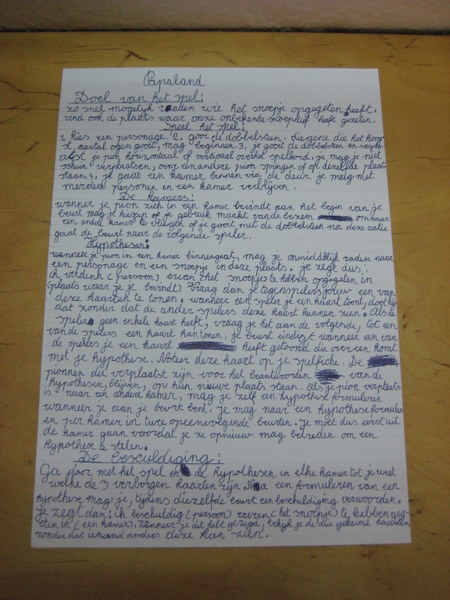 Papaland
Doel van het spel:
zo snel mogelijk raden wie het snoepje opgegeten heeft.
vind ook de plaats waar onze onbekende snoeper heeft gezeten.
Speel het spel:
1. Kies een personage. 2. gooi de dobbelsteen, diegene die het hoog
st, aantal ogen gooit, mag beginnen. 3. je gooit de dobbelsteen en
je pion horizontaal of verticaal over het spelbord. je mag je niet
schuin verplaatsen, over een andere pion springen of op dezelfde plaats
staan. 4. je gaat een kamer binnen via de deur. je mag met
meerdere personen in een kamer verblijven.
De kamers:
wanneer je pion zich in een kamer bevindt aan het begin van je
beurt mag je kiezen of je gebruik maakt van de bezem om naar
een andere kamer te vliegen of je gooit met de dobbelsteen na deze actie
gaat de beurt naar de volgende speler.
Hypothese:
wanneer je pion in een kamer binnengaat, mag je onmiddellijk raden naar
een personage en een snoepje in deze plaats. je zegt dus:
ik verdenk (persoon) ervan het snoepje te hebben opgegeten in
(plaats waar je je bevindt) Vraag dan je tegenspelers jouw een van
deze kaarten te tonen. wanneer een speler je een kaart toont, doet hij
dat zonder dat de andere spelers deze kaart kunnen zien. Als de
speler geen enkele kaart heeft, vraag je het aan de volgende, tot een
van de spelers een kaart kan tonen. je beurt eindigt wanneer een van
de spelers je een kaart heeft getoond die overeen komt
met je hypothese. Noteer deze kaart op je spelfiche. De
pionnen die verplaatst zijn voor het beantwoorden van de
hypothesen, blijven, op hun nieuwe plaats staan. Als je pion verplaatst
is naar een andere kamer, mag je zelf een hypothese formuleren
wanneer je aan je beurt bent. Je mag naar een hypothese formuleren
en per kamer in twee opeenvolgende beurten. Je moet dus eerst uit
de kamer gaan voordat je ze opnieuw mag betreden om een
hypothese te stellen.
De beschuldiging:
Ga door met het spel en de hypothesen in elke kamer tot je weet
welke de 3 verborgen kaarten zijn. Na een formuleren van een
hypothese mag je, tijdens diezelfde beurt een beschuldiging verwoorden.
Je zegt dan: ik beschuldig (persoon) ervan (het snoepje) te hebben geg-
eten in (een kamer). Wanneer je dit hebt gezegd, bekijk je de drie geheime kaarten
zonder dat iemand anders deze kan zien.